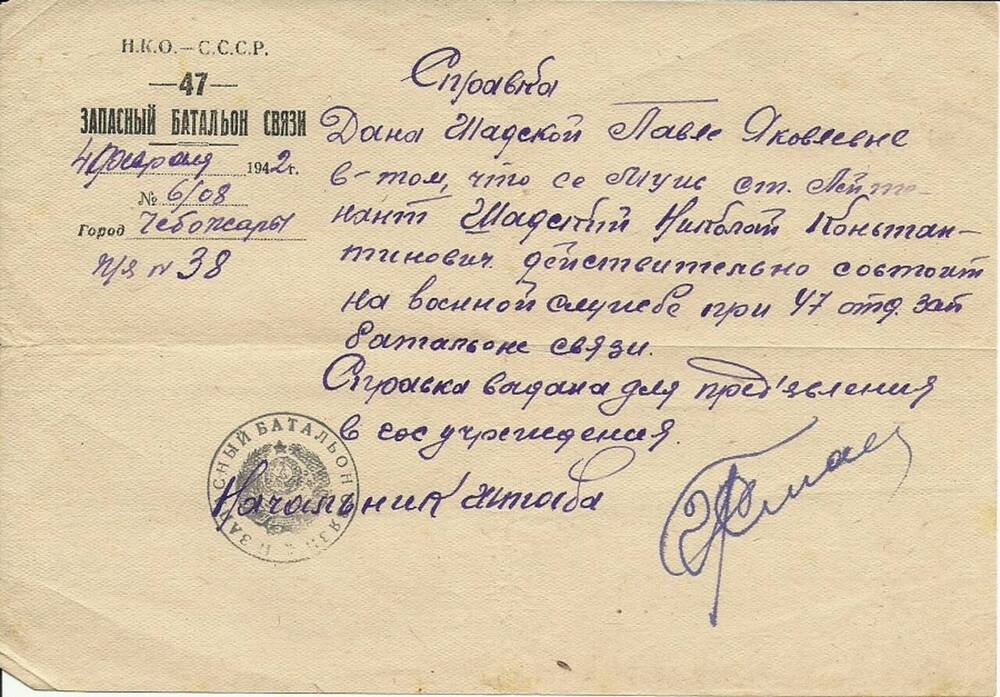 Н.К.О. — С.С.С.Р.
— 47 —
ЗАПАСНЫЙ БАТАЛЬОН СВЯЗИ
4 февраля 1942 г.
№ 6/08
Город Чебоксары
п/я N 38
Справка
Дана Шадской Павле Яковлевне
в-том, что ее муж ст. Лейте-
нант Шадский Николай Констан-
тинович действительно состоит
на военной службе при 47 отд. зап
батальоне связи.
Справка выдана для пред'явления
в гос учреждения.
Начальник штаба
ЗАПАСНЫЙ БАТАЛЬОН СВЯЗИ